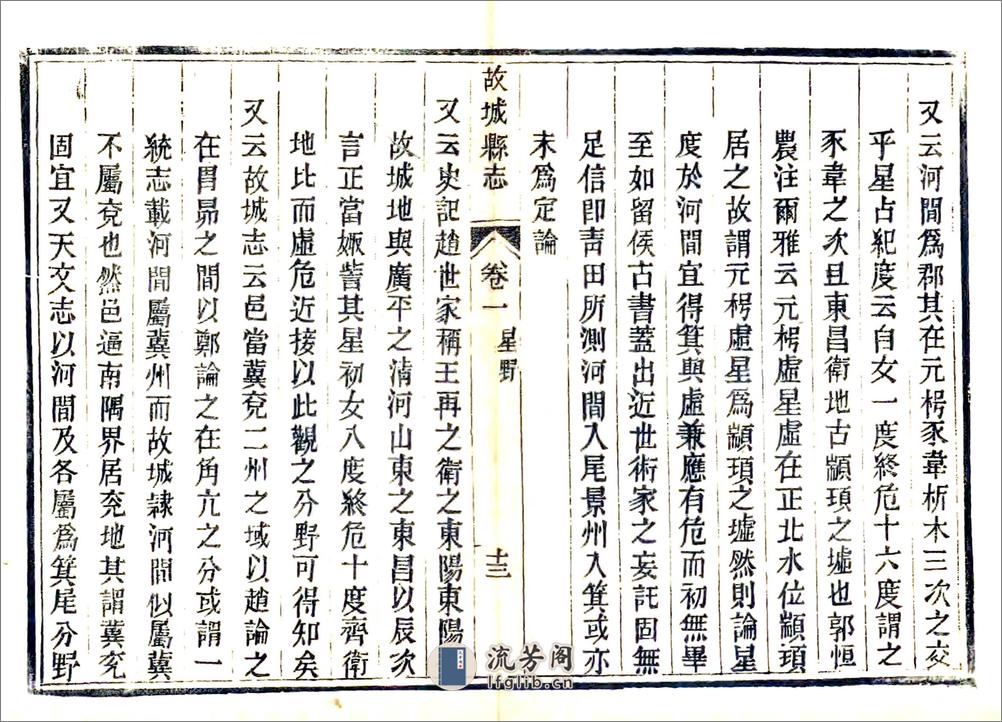 又云河間爲郡其在元枵豕韋析木三次之交
乎星占紀度云自女一度終危十六度謂之
豕韋之次且東昌衛地古顓頊之墟也郭恒
農注爾雅云元枵虛星虛在正北水位顓頊
居之故謂元枵虛星爲顓頊之墟然則論星
度於河間宜得箕與虛兼應有危而初無畢
至如留侯古書蓋出近世術家之妄託固無
足信即青田所測河間入尾景州入箕或亦
未爲定論
故城縣志
卷一
星野
十三
又云史記趙世家稱王再之衛之東陽東陽
故城地與廣平之清河山東之東昌以辰次
言正當娵訾其星初女八度終危十度齊衛
地比而虛危近接以此觀之分野可得知矣
又云故城志云邑當冀兗二州之域以趙論之
在胃昴之間以鄭論之在角亢之分或謂一
統志載河間屬冀州而故城隸河間似屬冀
不屬兗也然邑逼南隅界居兗地其謂冀兗
固宜又天文志以河間及各屬爲箕尾分野
流芳阁
lfglib.cn